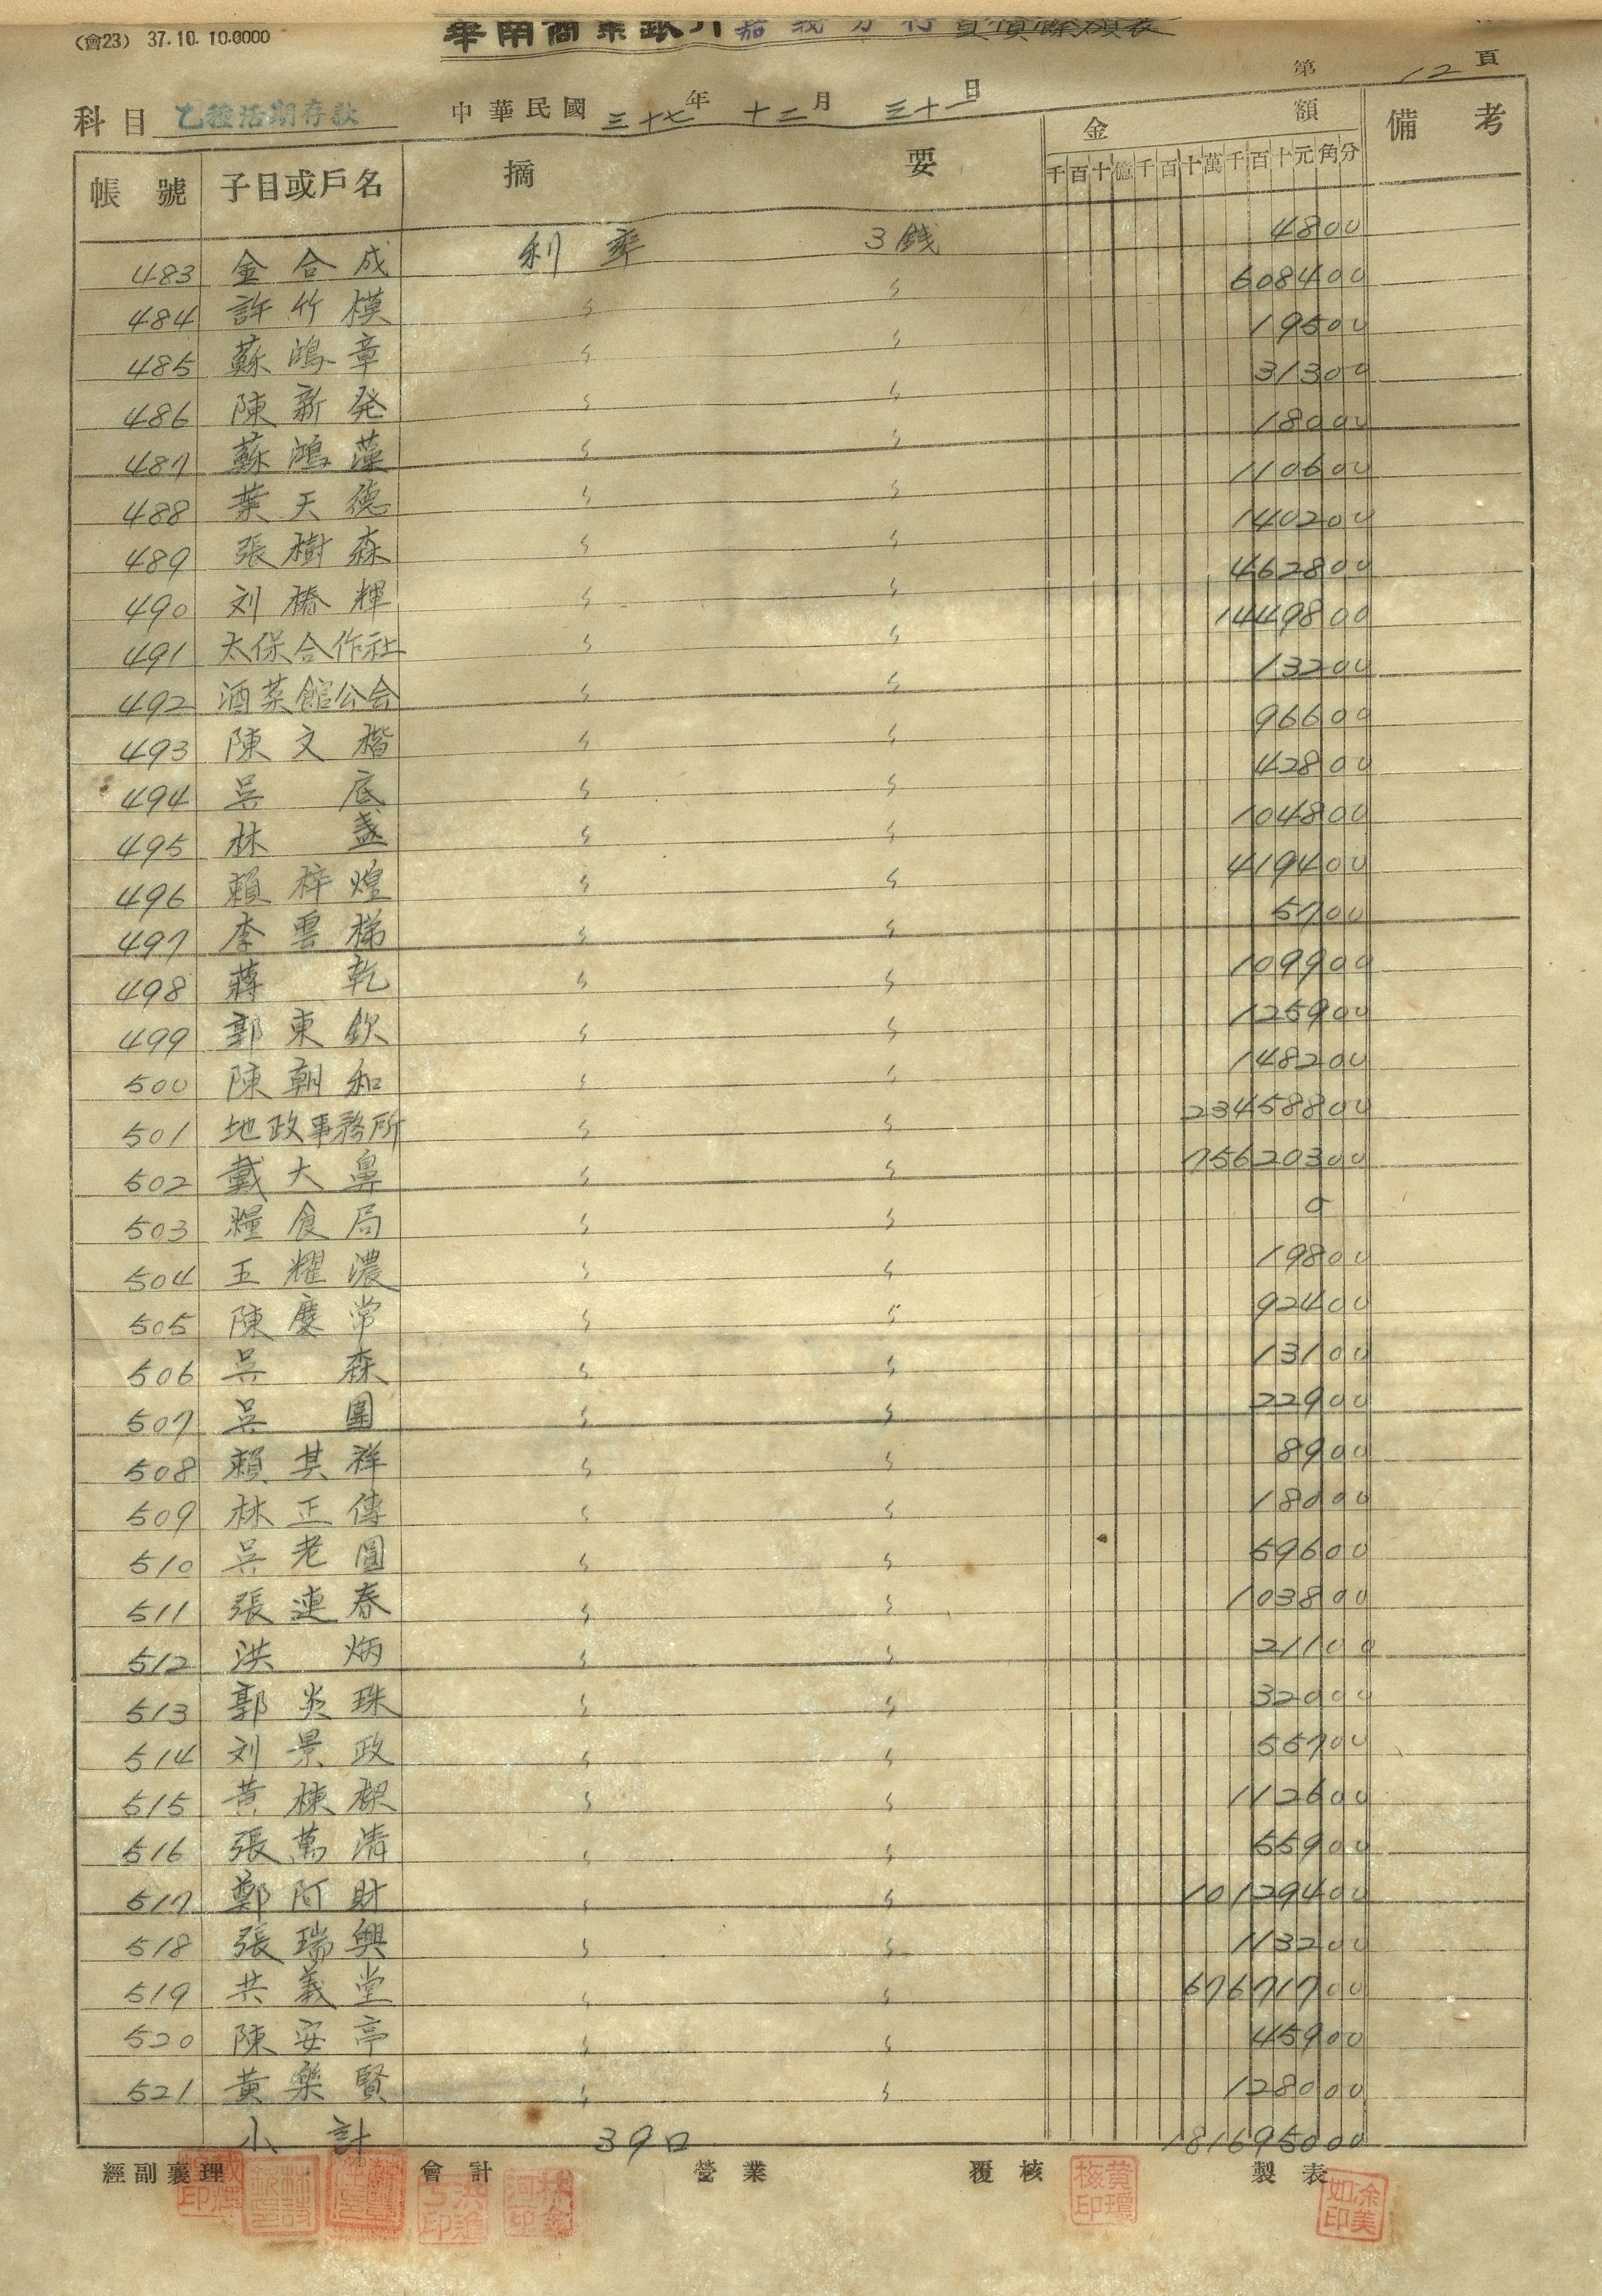 (會23) 37.10.10.0000
華南商業銀行嘉義分行負債餘額表
第 12 頁
科目 乙種活期存款 中華民國 三十七 年 十二 月 三十一 日
帳號 子目或戶名 摘要 金額 備考
千百十億千百十萬千百十元角分
483 金合成 利率 3錢 4800
484 許竹模 〃 〃 608400
485 蘇鴻章 〃 〃 19500
486 陳新発 〃 〃 31300
487 蘇鴻藻 〃 〃 18000
488 葉天德 〃 〃 110600
489 張樹森 〃 〃 140200
490 刘樁輝 〃 〃 462800
491 太保合作社 〃 〃 1449800
492 酒菜館公会 〃 〃 13200
493 陳文楷 〃 〃 96600
494 吳底 〃 〃 42800
495 林盞 〃 〃 104800
496 賴梓煌 〃 〃 419400
497 李雲梯 〃 〃 5700
498 蔣乾 〃 〃 109900
499 郭東欽 〃 〃 125900
500 陳朝和 〃 〃 148200
501 地政事務所 〃 〃 23458800
502 戴大鼻 〃 〃 75620300
503 糧食局 〃 〃 0
504 王耀濃 〃 〃 19800
505 陳慶常 〃 〃 92400
506 吳森 〃 〃 13100
507 吳團 〃 〃 22900
508 賴其祥 〃 〃 8900
509 林正傳 〃 〃 18000
510 吳老圓 〃 〃 59600
511 張連春 〃 〃 103800
512 洪炳 〃 〃 21100
513 郭炎珠 〃 〃 32000
514 刘景政 〃 〃 55700
515 黃棟樑 〃 〃 112600
516 張萬清 〃 〃 55900
517 鄭阿財 〃 〃 10129400
518 張瑞興 〃 〃 113200
519 共義堂 〃 〃 67671700
520 陳安亭 〃 〃 45900
521 黃樂賢 〃 〃 128000
小計 39口 181695000
經副襄理 會計 營業 覆核 製表
黃瓊極印
涂美如印